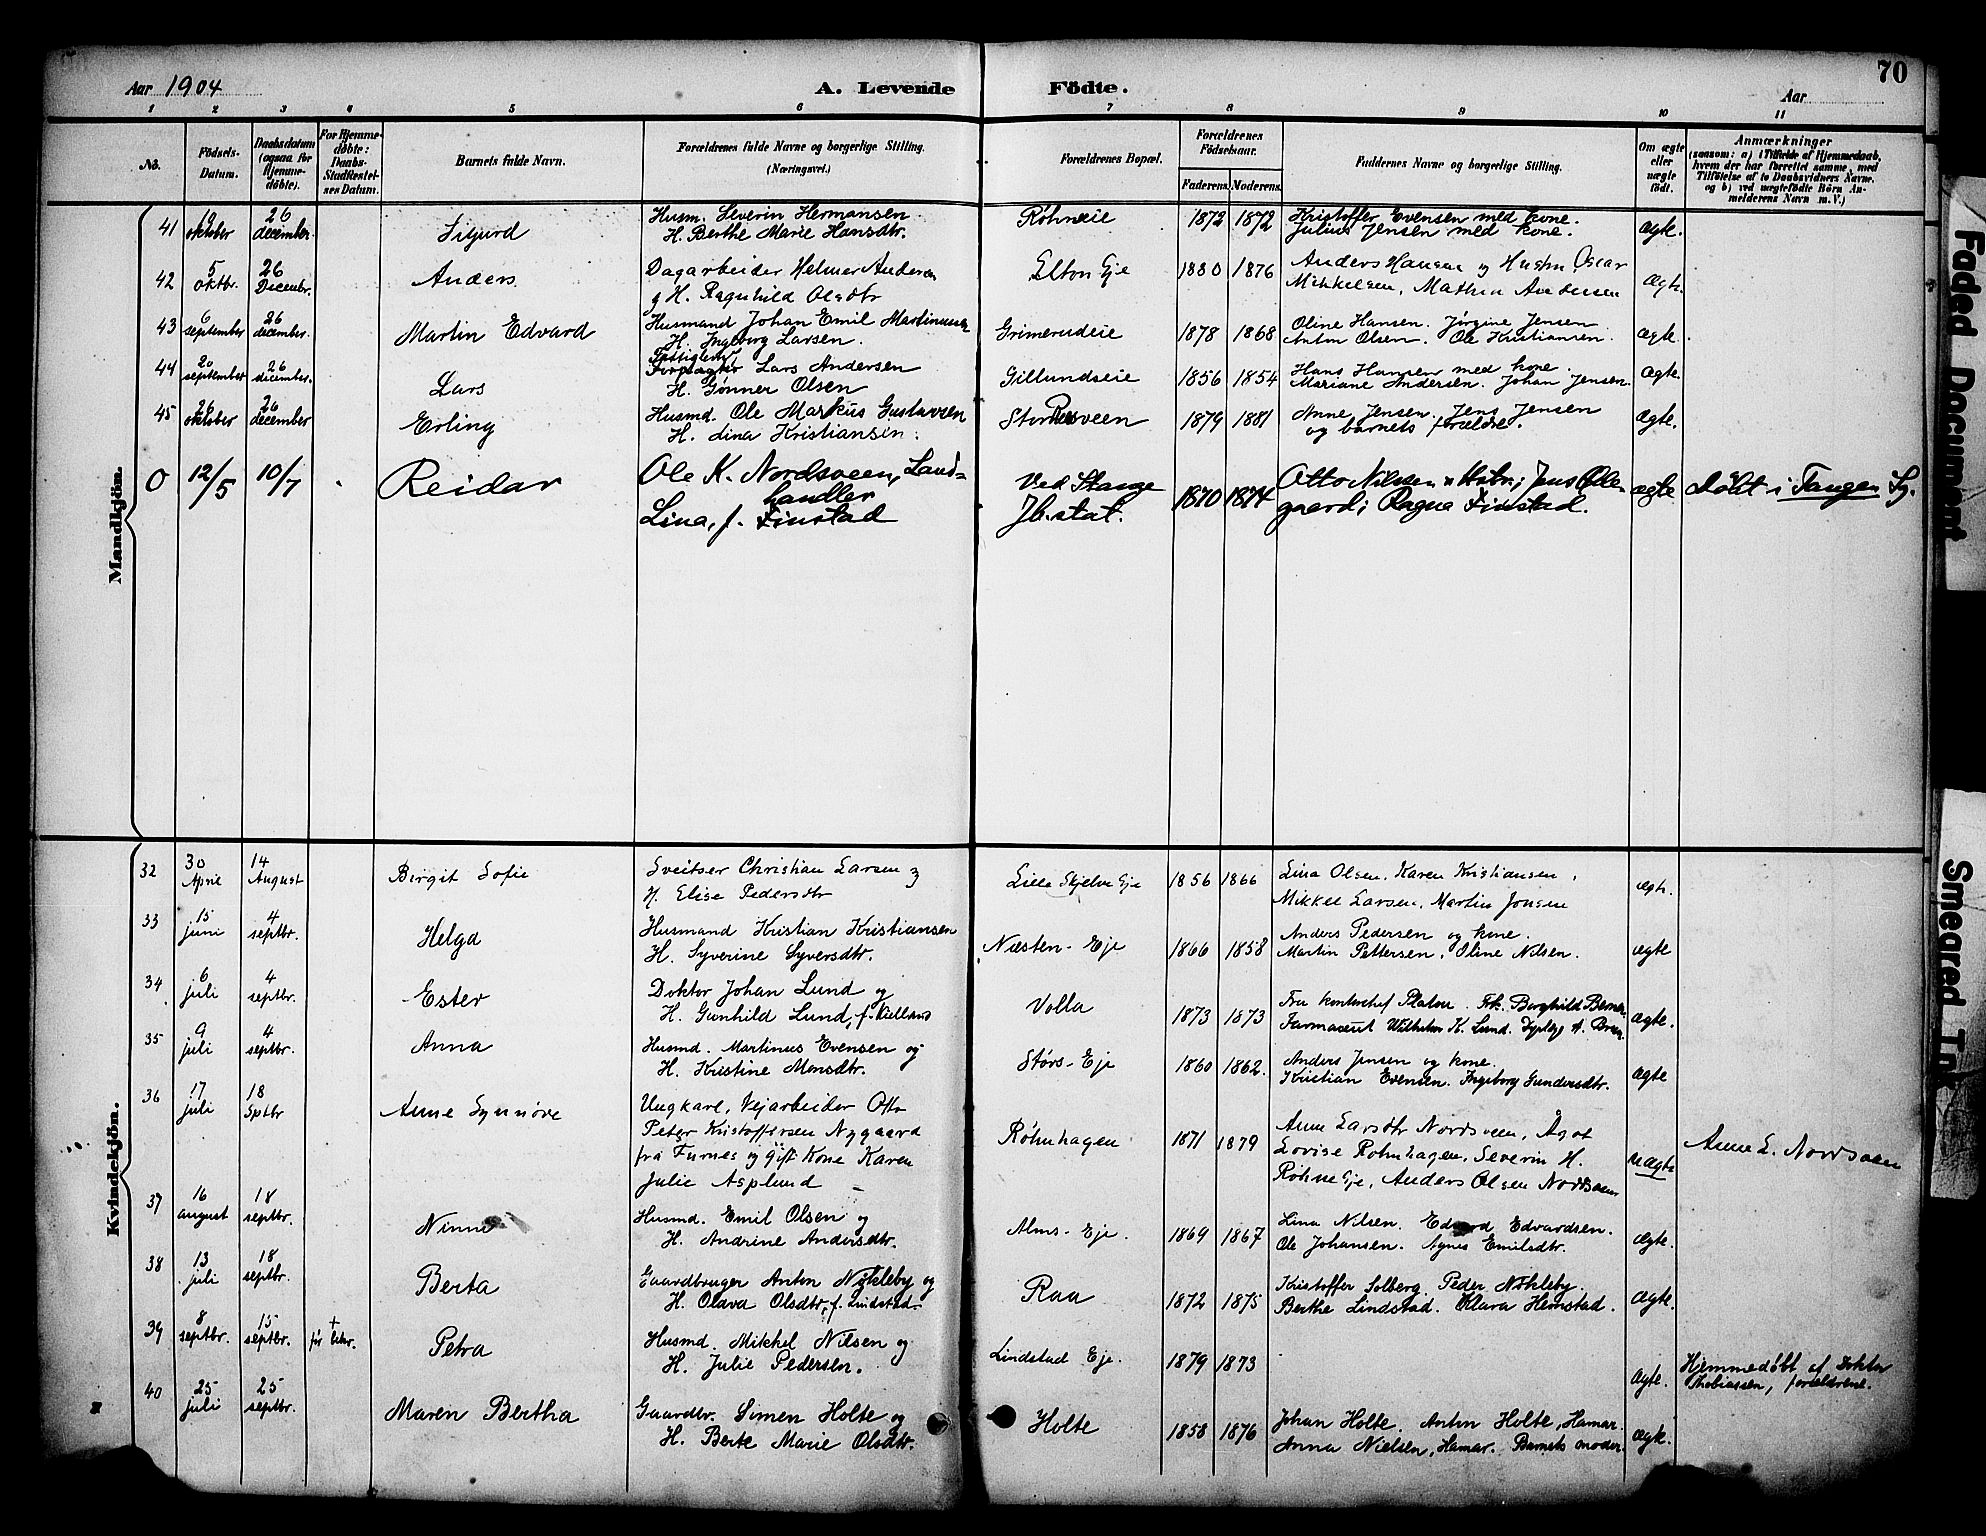 70
Aar 1904
A. Levende Födte.
Aar
1 2 3 4 5 6 7 8 9 10 11
No.
Födsels-Datum.
Daabsdatum (ogsaa for Hjemme-döbte).
For Hjemme-döbte: Daabs-Stadfæstel-ses Datum.
Barnets fulde Navn.
Forældrenes fulde Navne og borgerlige Stilling. (Næringsvei.)
Forældrenes Bopæl.
Forældrenes Födselsaar.
Faderens. Moderens.
Faddernes Navne og borgerlige Stilling.
Om ægte eller uægte födt.
Anmærkninger
(saasom: a) i Tilfælde af Hjemmedaab, hvem der har forrettet samme, med Tilföielse af to Daabsvidners Navne. og b) ved uægtefödte Börn An-melderens Navn m. V.)
Mandkjön.
41 9 oktober 26 december. Sigurd Husm. Severin Hermansen H. Berthe Marie Hansdtr. Röhneeie 1872 1872 Kristoffer Evensen med kone. Julius Jensen med kone. Ægte.
42 5 oktbr. 26 Decembr. Anders Dagarbeider Helmer Andersen g H. Ragnhild Olsdtr Elton Eje 1880 1876 Anders Hansen og Hustru Oscar Mikkelsen, Mathea Andersen Ægte.
43 6 september 26 december. Martin Edvard Husmand Johan Emil Martinusen H. Ingeborg Larsen. Grimerudeie 1878 1868 Oline Hansen. Jörgine Jensen Anton Olsen. Ole Kristiansen. Ægte.
44 20 september 26 december. Lars Lars Andersen H. Gönner Olsen Gillundseie 1856 1854 Hans Hansen med kone. Mariane Andersen. Johan Jensen. Ægte.
45 26 oktober 26 december Erling Husmd. Ole Markus Gustavsen H. Lina Kristiansen. 1879 1881 Anne Jensen. Jens Jensen og barnets forældre. Ægte.
0 12/5 10/7 Reidar Ole K. Nordsveen, Land-handler Lina, f. Finstad Ved Stange Jb.stat. 1870 1874 Otto Nilsen o Hstr.; Jens Ødegaard; Ragna Finstad. ægte døbt i Tangen
Kvindekjön.
32 30 April 14 August Birgit Sofie Sveitser Christian Larsen g H. Elise Pedersdtr Lille Skjelve Eje 1856 1866 Lina Olsen, Karen Kristiansen, Mikkel Larsen, Martin Jonsen Ægte.
33 15 juni 4 septbr. Helga Husmand Kristian Kristiansen H. Syverine Syversdtr. Næsten-Eje 1866 1858 Anders Pedersen og kone. Martin Pettersen. Oline Nilsen. Ægte
34 6 juli 4 septbr. Ester Doktor Johan Lund og H. Gunhild Lund, f. Kielland Volla 1873 1873 Fru kontorchef Platou. Frk. Borghild Farmaceut Wilhelm K. Lund. Ægte.
35 9 juli 4 septbr. Anna Husmd. Martinus Evensen og H. Kristine Monsdtr. Störs-Eje 1860 1862. Anders Jensen og kone. Kristian Evensen. Ingeborg Gundersdtr. Ægte
36 17 juli 18 Sptbr Anne Synnöve Ungkarl, Vejarbeider Otto Peter Kristoffersen Nygaard fra Furnes og gift Kone Karen Julie Asplund Röhnhagen 1871 1879 Anne Larsdtr Nordsveen, Ågot Lovise Röhnhagen, Severin H. Röhne Eje, Anders Olsen Nordsveen Uægte Anne L. Nordsveen
37 16 august 18 septbr. Ninne Husmd. Emil Olsen og H. Andrine Andersdtr. Alms-Eje. 1869 1867 Lina Nilsen. Edvard Edvardsen. Ole Johansen. Agnes Emilsdtr. Ægte.
38 13 juli 18 septbr. Berta Gaardbruger Anton Nökleby og H. Olava Olsdtr, f. Lindstad. Raa 1872 1875 Kristoffer Solberg. Peder Nökleby. Berthe Lindstad. Klara Hemstad. Ægte.
39 8 septbr. 15 septbr. Petra Husmd. Mikkel Nilsen og H. Julie Pedersen. Lindstad Eje. 1879 1873 Ægte. Hjemmedöbt af Doktor Thobiassen, forældrene.
40 25 juli 25 septbr. Maren Bertha Gaardbr. Simen Holte og H. Berte Marie Olsdtr. Holte 1858 1876 Johan Holte. Anton Holte, Hamar. Anna Nielsen, Hamar. Barnets moder. Ægte.
Faded Document
Smeared Ink